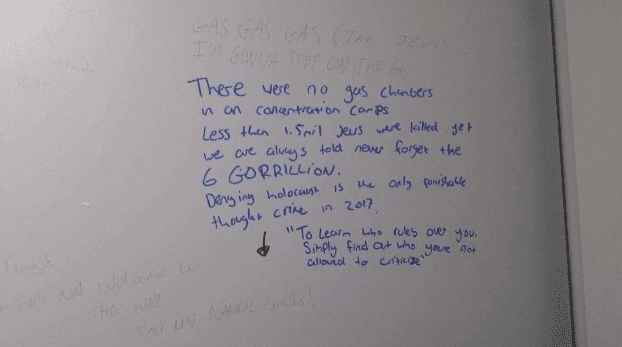 GAS GAS GAS (THE JEWS)
I'M GONNA STEP ON THE GAS
There were no gas chambers
in an concentration camps.
Less then 1.5mil Jews were killed yet
we are always told never forget the
6 GORRILLION.
Denying holocaust is the only punishable
thought crime in 2017.
"To Learn who rules over you,
Simply find out who youre not
allowed to criticize"
Not Welcome In
This Wall